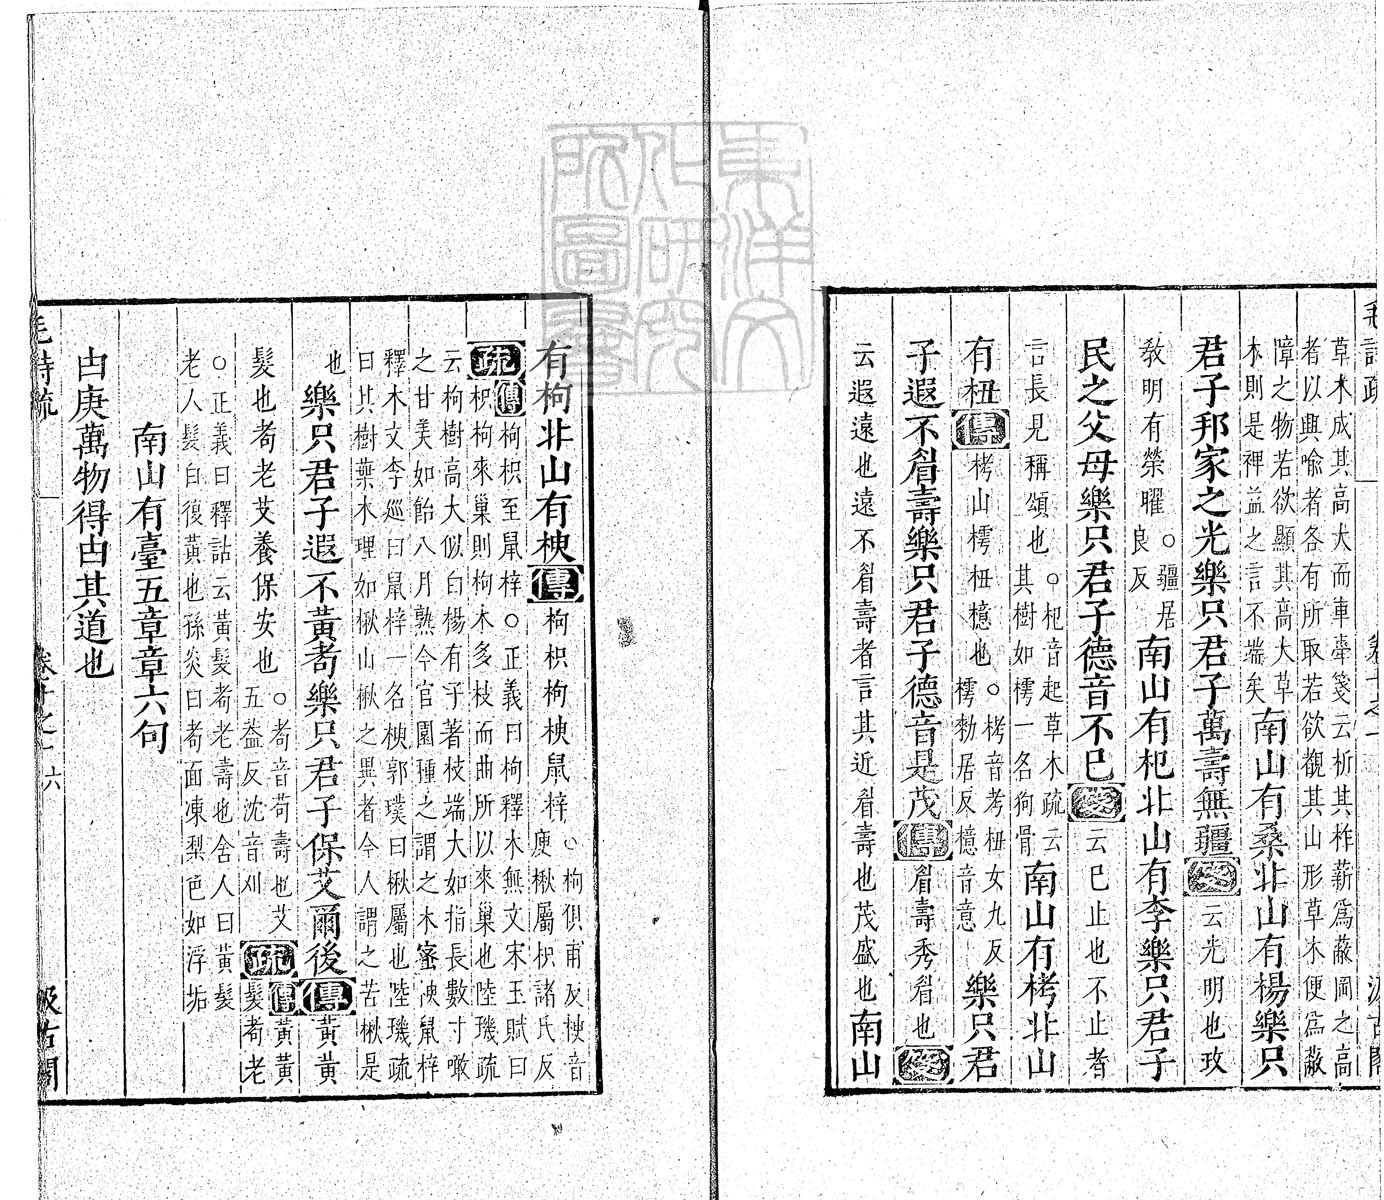 草木成其高大而車舝箋云析其柞薪爲蔽岡之高
者以興喻者各有所取若欲觀其山形草木便爲蔽
障之物若欲顯其高大草
木則是裨益之言不端矣
南山有桑北山有楊樂只
君子邦家之光樂只君子萬壽無疆箋云光明也政
教明有榮曜
○疆居良反
南山有杞北山有李樂只君子
民之父母樂只君子德音不已箋云已止也不止者
言長見稱頌也
○杞音起草木疏云
其樹如樗一名狗骨
南山有栲北山
有杻傳栲山樗杻檍也
○栲音考杻女九反
樗勑居反檍音意
樂只君
子遐不眉壽樂只君子德音是茂傳眉壽秀眉也箋
云遐遠也遠不眉壽者言其近眉壽也茂盛也南山
有枸北山有楰傳枸枳枸楰鼠梓
○枸俱甫反楰音
庾楸屬枳諸氏反
疏傳枸枳至鼠梓○正義曰枸釋木無文宋玉賦曰
枳枸來巢則枸木多枝而曲所以來巢也陸璣疏
云枸樹高大似白楊有子著枝端大如指長數寸噉
之甘美如飴八月熟今官園種之謂之木蜜楰鼠梓
釋木文李巡曰鼠梓一名楰郭璞曰楸屬也陸璣疏
曰其樹葉木理如楸山楸之異者今人謂之苦楸是
也
樂只君子遐不黃耇樂只君子保艾爾後傳黃黃
髮也耇老艾養保安也
○耇音苟壽也艾
五蓋反沈音刈
疏傳黃黃
髮耇老
○正義曰釋詁云黃髮耇老壽也舍人曰黃髮
老人髮白復黃也孫炎曰耇面凍梨色如浮垢
南山有臺五章章六句
由庚萬物得由其道也
毛詩疏
卷十之一
六
汲古閣
東洋文化研究所圖書